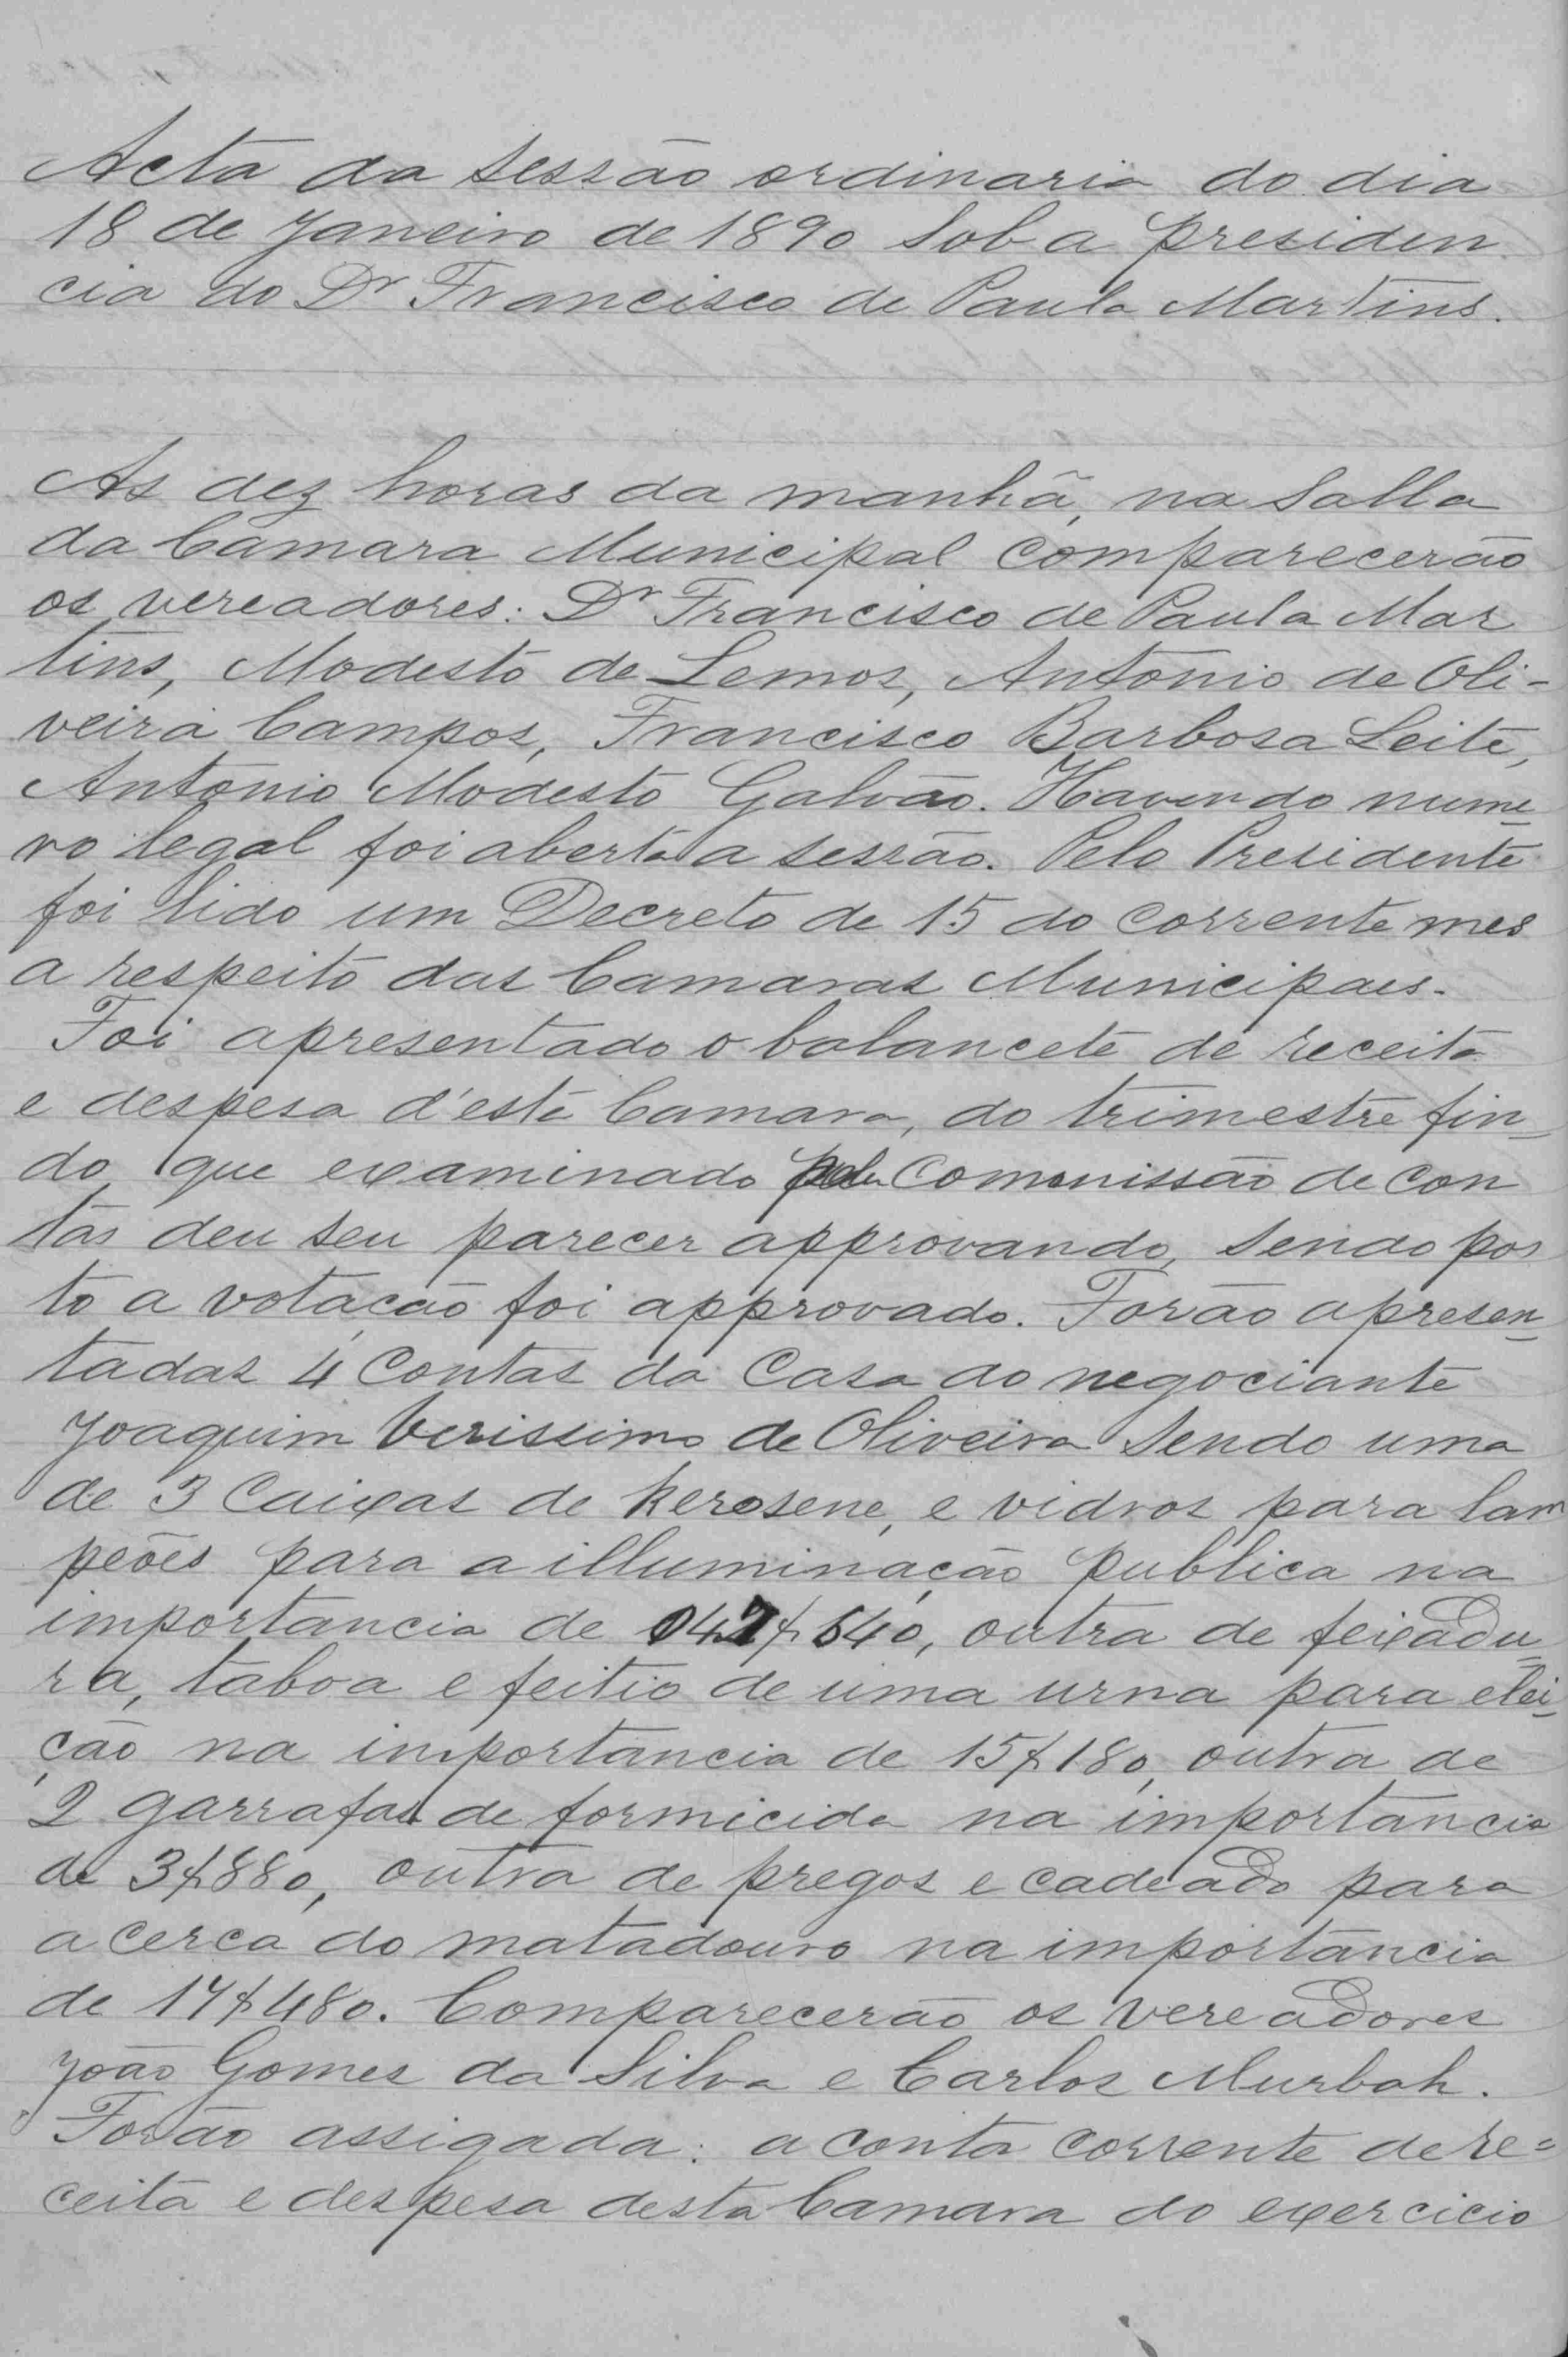 Acta da Sessão ordinaria do dia
18 de Janeiro de 1890 Sob a presiden
cia do Dr Francisco de Paula Martins.
As dez horas da manhã, na Salla
da Camara Municipal comparecerão
os vereadores: Dr Francisco de Paula Mar
tins, Modesto de Lemos, Antonio de Oli-
veira Campos, Francisco Barbosa Leite,
Antonio Modesto Galvão. Havendo nume
ro legal foi aberta a sessão. Pelo Presidente
foi lido um Decreto de 15 do corrente mes
a respeito das Camaras Municipaes.
Foi apresentado o balancete de receita
e despesa d'esta Camara, do trimestre fin
do que examinado pela Commissão de con
tas deu seu parecer approvando, Sendo pos
to a votação foi approvado. Forão apresen
tadas 4 Contas da Casa do negociante
Joaquim Verissimo de Oliveira Sendo uma
de 3 Caixas de Kerosene, e vidros para lam
peões para a illuminação publica na
importancia de outra de feixadu
ra, taboa e feitio de uma urna para elei
ção na importancia de 15$180, outra de
2 garrafas de formicida na importancia
de 3$880, outra de pregos e cadeado para
a cerca do matadouro na importancia
de 14$480. Comparecerão os vereadores
João Gomes da Silva e Carlos Murbah.
Forão assigada: a conta corrente de re=
ceita e despesa desta Camara do exercicio